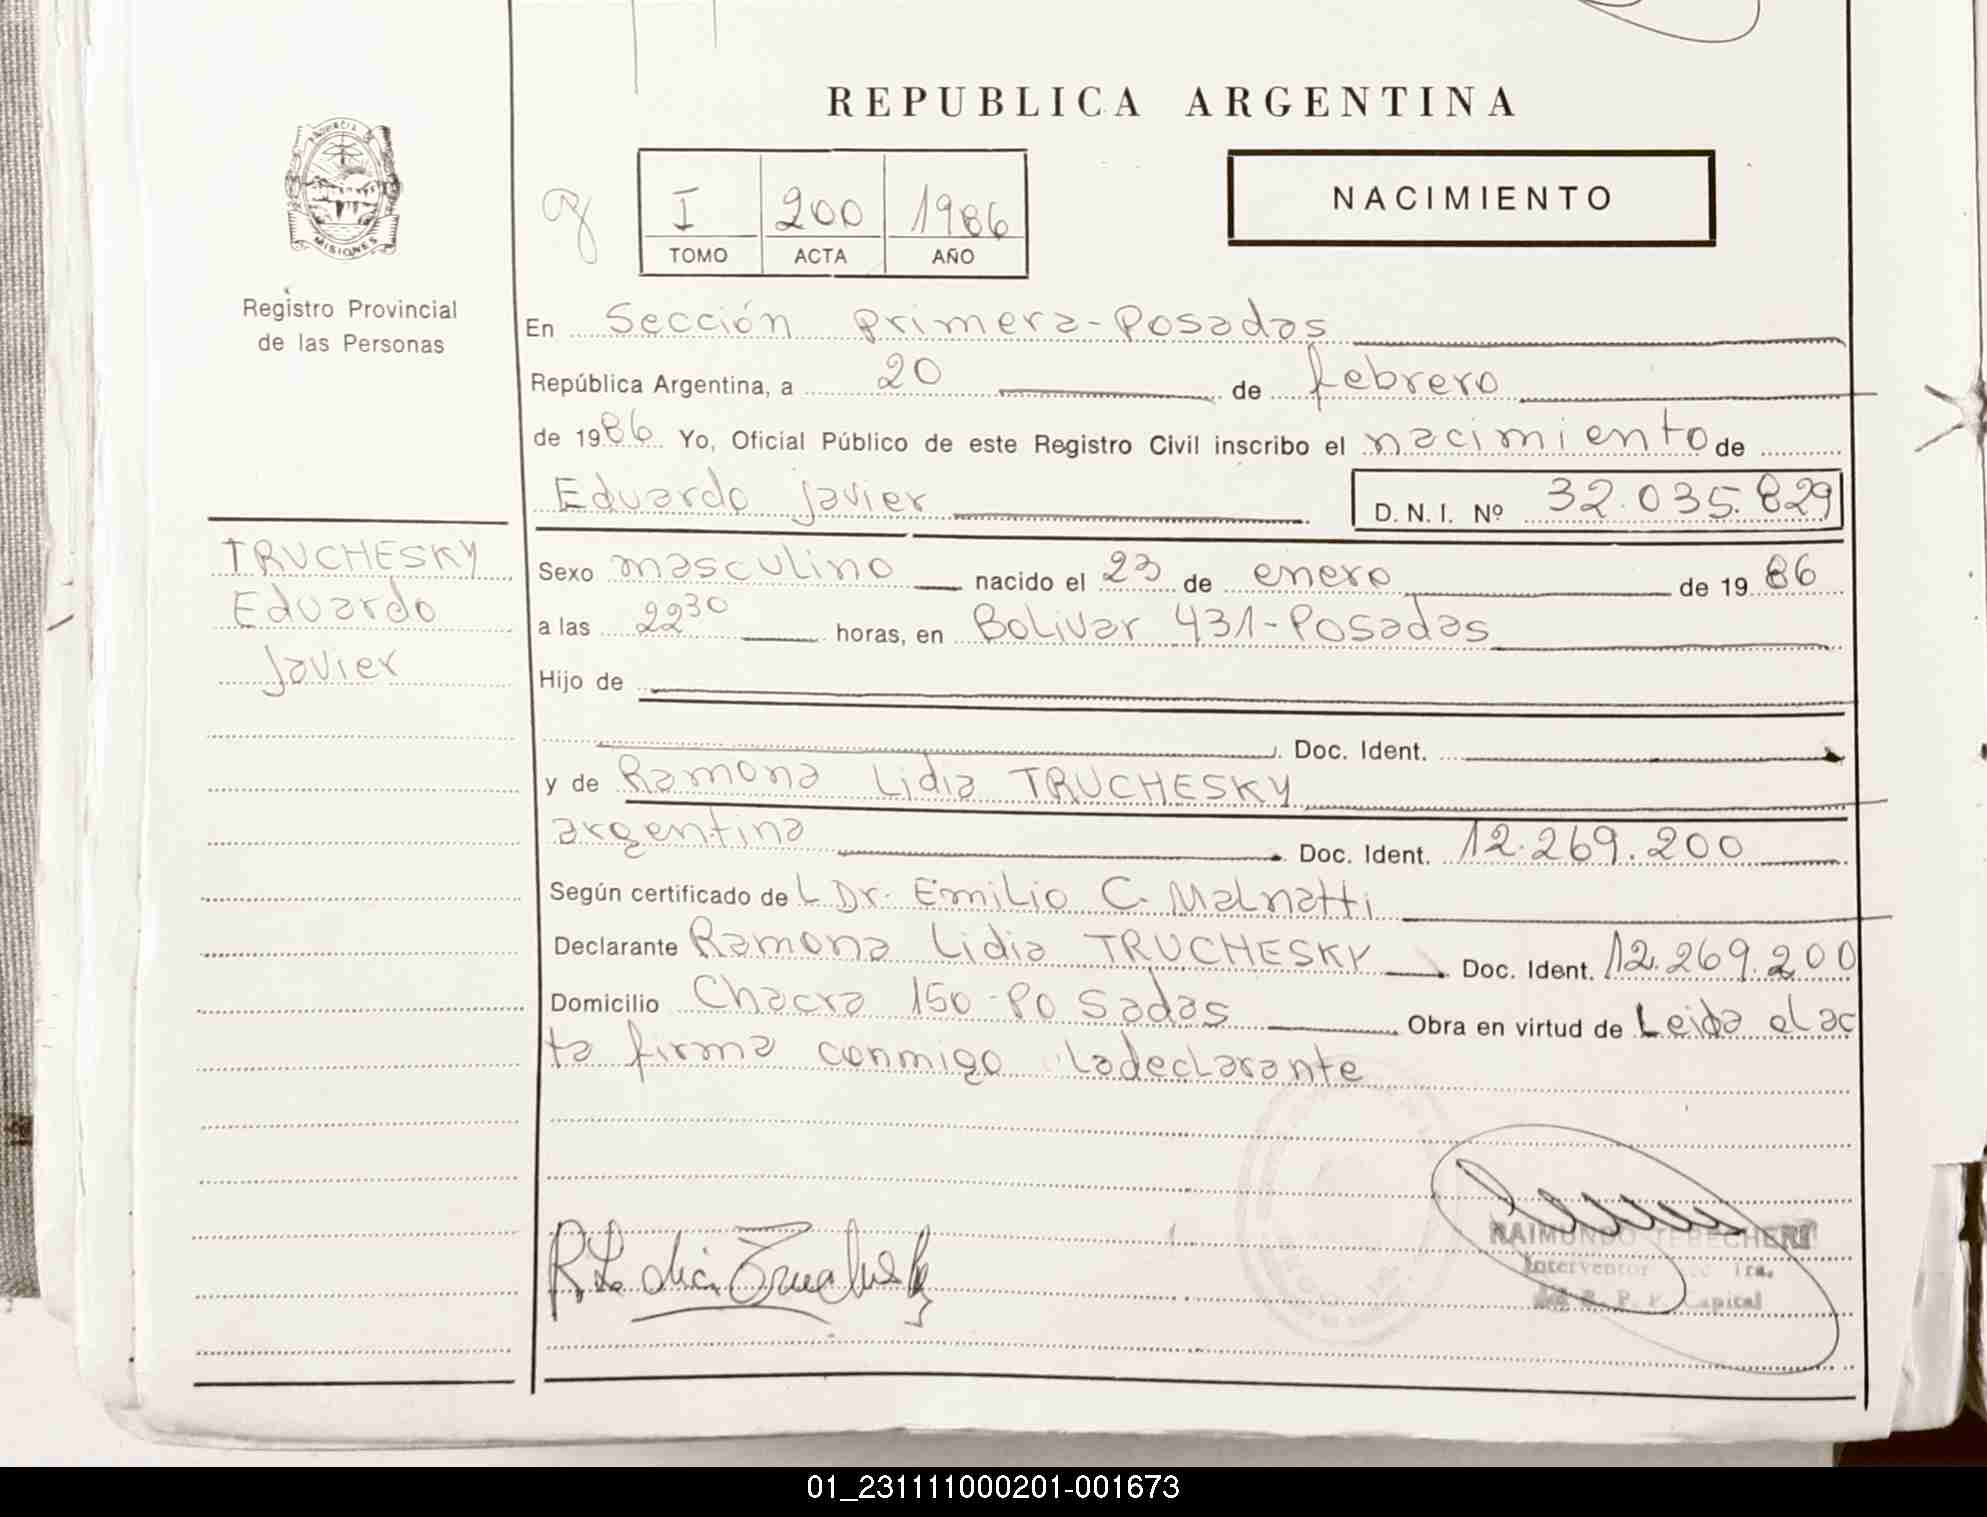 REPUBLICA ARGENTINA
PROVINCIA DE
MISIONES
Registro Provincial
de las Personas
I 200 1986
TOMO ACTA AÑO
NACIMIENTO
En Sección primera-Posadas
República Argentina, a 20 de febrero
de 1986 Yo, Oficial Público de este Registro Civil inscribo el nacimiento de
Eduardo Javier D. N. I. Nº 32.035.829
TRUCHESKY
Eduardo
Javier
Sexo masculino nacido el 23 de enero de 1986
a las 22 30 horas, en Bolivar 431-Posadas
Hijo de
Doc. Ident.
y de Ramona Lidia TRUCHESKY
argentina Doc. Ident. 12.269.200
Según certificado de L Dr. Emilio C. Malnatti
Declarante Ramona Lidia TRUCHESKY Doc. Ident. 12.269.200
Domicilio Chacra 150-Posadas Obra en virtud de Leida el ac
ta firma conmigo ladeclarante
R Lidia Truchesky
RAIMUNDO
Interventor
Capital
01_231111000201-001673